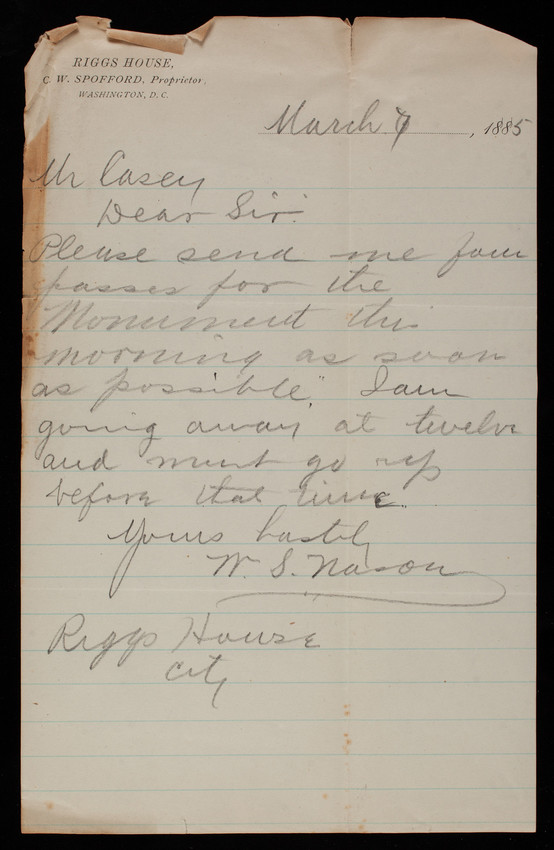 RIGGS HOUSE,
C. W. SPOFFORD, Proprietor,
WASHINGTON, D. C.
March 7, 1885
Mr Casey
Dear Sir:
Please send me four
passes for the
Monument this
morning as soon
as possible". I am
going away at twelve
and must go up
before that time.
Yours hastily
W. S. Nason
Riggs House
City